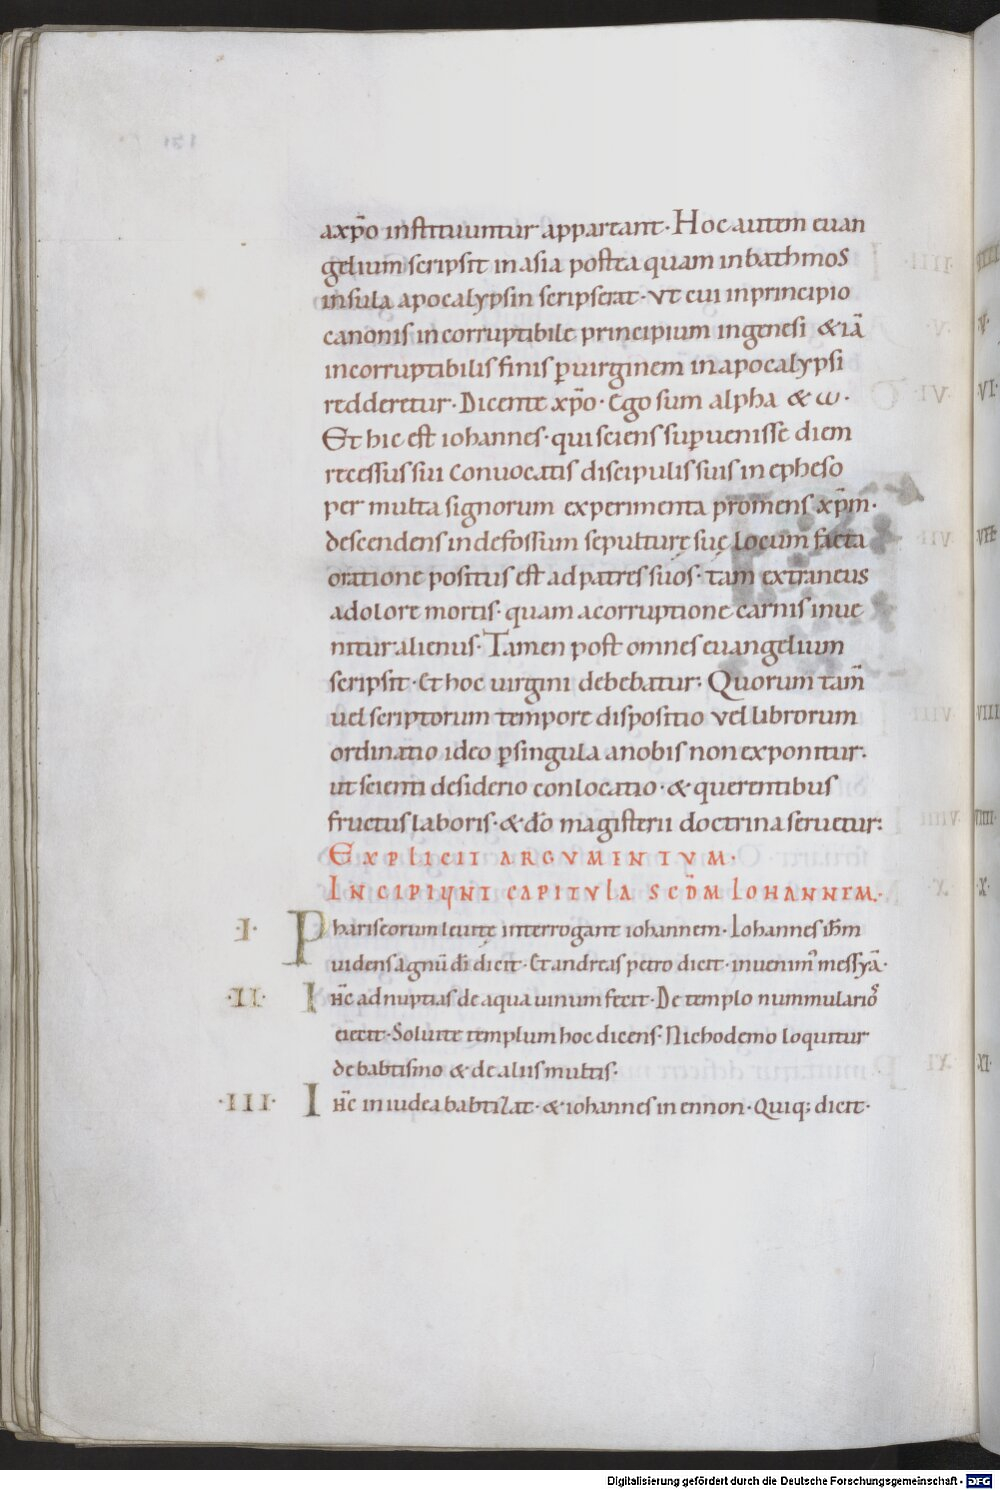 axp̄o instituuntur appareant· Hoc autem euan
gelium scripsit in asia postea quam in bathmos
insula apocalypsin scripserat· ut cui in principio
canonis incorruptibile principium in genesi & iā
incorruptibilis finis p̱ uirginem in apocalypsi
redderetur· Dicente xp̄o· Ego sum alpha & ω·
Et hic est iohannes· qui sciens sup̱uenisse diem
recessus sui Conuocatis discipulis suis in epheso
per multa signorum experimenta promens xp̄m·
descendens in defossum sepulturę suę locum facta
oratione positus est ad patres suos· tam extraneus
a dolore mortis· quam a corruptione carnis inue
nitur alienus· Tamen post omnes euangelium
scripsit· Et hoc uirgini debebatur: Quorum tam̄
uel scriptorum tempore dispositio vel librorum
ordinatio ideo p̱ singula a nobis non exponitur·
ut scienti desiderio conlocatio· & querentibus
fructus laboris· & do̅ magisterii doctrina seruetur:
EXPLICIT ARGUMENTUM·
INCIPIUNT CAPITULA SCDM̄ IOHANNEM·
·I· Phariseorum leuite interrogant iohannem· Iohannes ihm̄
uidens agnū dī dicit· Et andreas petro dicit· inuenim' messyā·
·II· Ihc̄ ad nuptias de aqua uinum fecit· De templo nummularios
eiecit· Soluite templum hoc dicens· Nichodemo loquitur
de babtismo & de aliis multis·
·III· Ihc̄ in iudea babtizat· & iohannes in ennon· Quiq; dicit·
VI·
X·
XI·
Digitalisierung gefördert durch die Deutsche Forschungsgemeinschaft - DFG